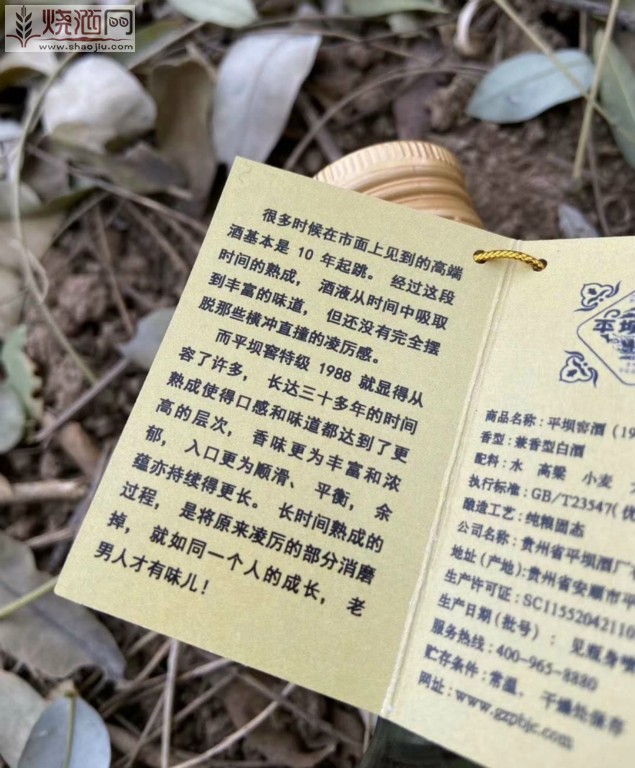 烧酒网
www.shaojiu.com
很多时候在市面上见到的高端
酒基本是 10 年起跳。 经过这段
时间的熟成， 酒液从时间中吸取
到丰富的味道， 但还没有完全摆
脱那些横冲直撞的凌厉感。
而平坝窖特级 1988 就显得从
容了许多， 长达三十多年的时间
熟成使得口感和味道都达到了更
高的层次， 香味更为丰富和浓
郁， 入口更为顺滑、 平衡， 余
蕴亦持续得更长。 长时间熟成的
过程， 是将原来凌厉的部分消磨
掉， 就如同一个人的成长， 老
男人才有味儿！
平坝
商品名称：平坝窖酒（19
香型：兼香型白酒
配料：水 高粱 小麦
执行标准：GB/T23547(优
酿造工艺：纯粮固态
公司名称：贵州省平坝酒厂
地址（产地）：贵州省安顺市平
生产许可证：SC11552042110
生产日期（批号）： 见瓶身喷
服务热线：400-965-8880
贮存条件：常温、 干燥处保存
网址：www.gzpbjc.com